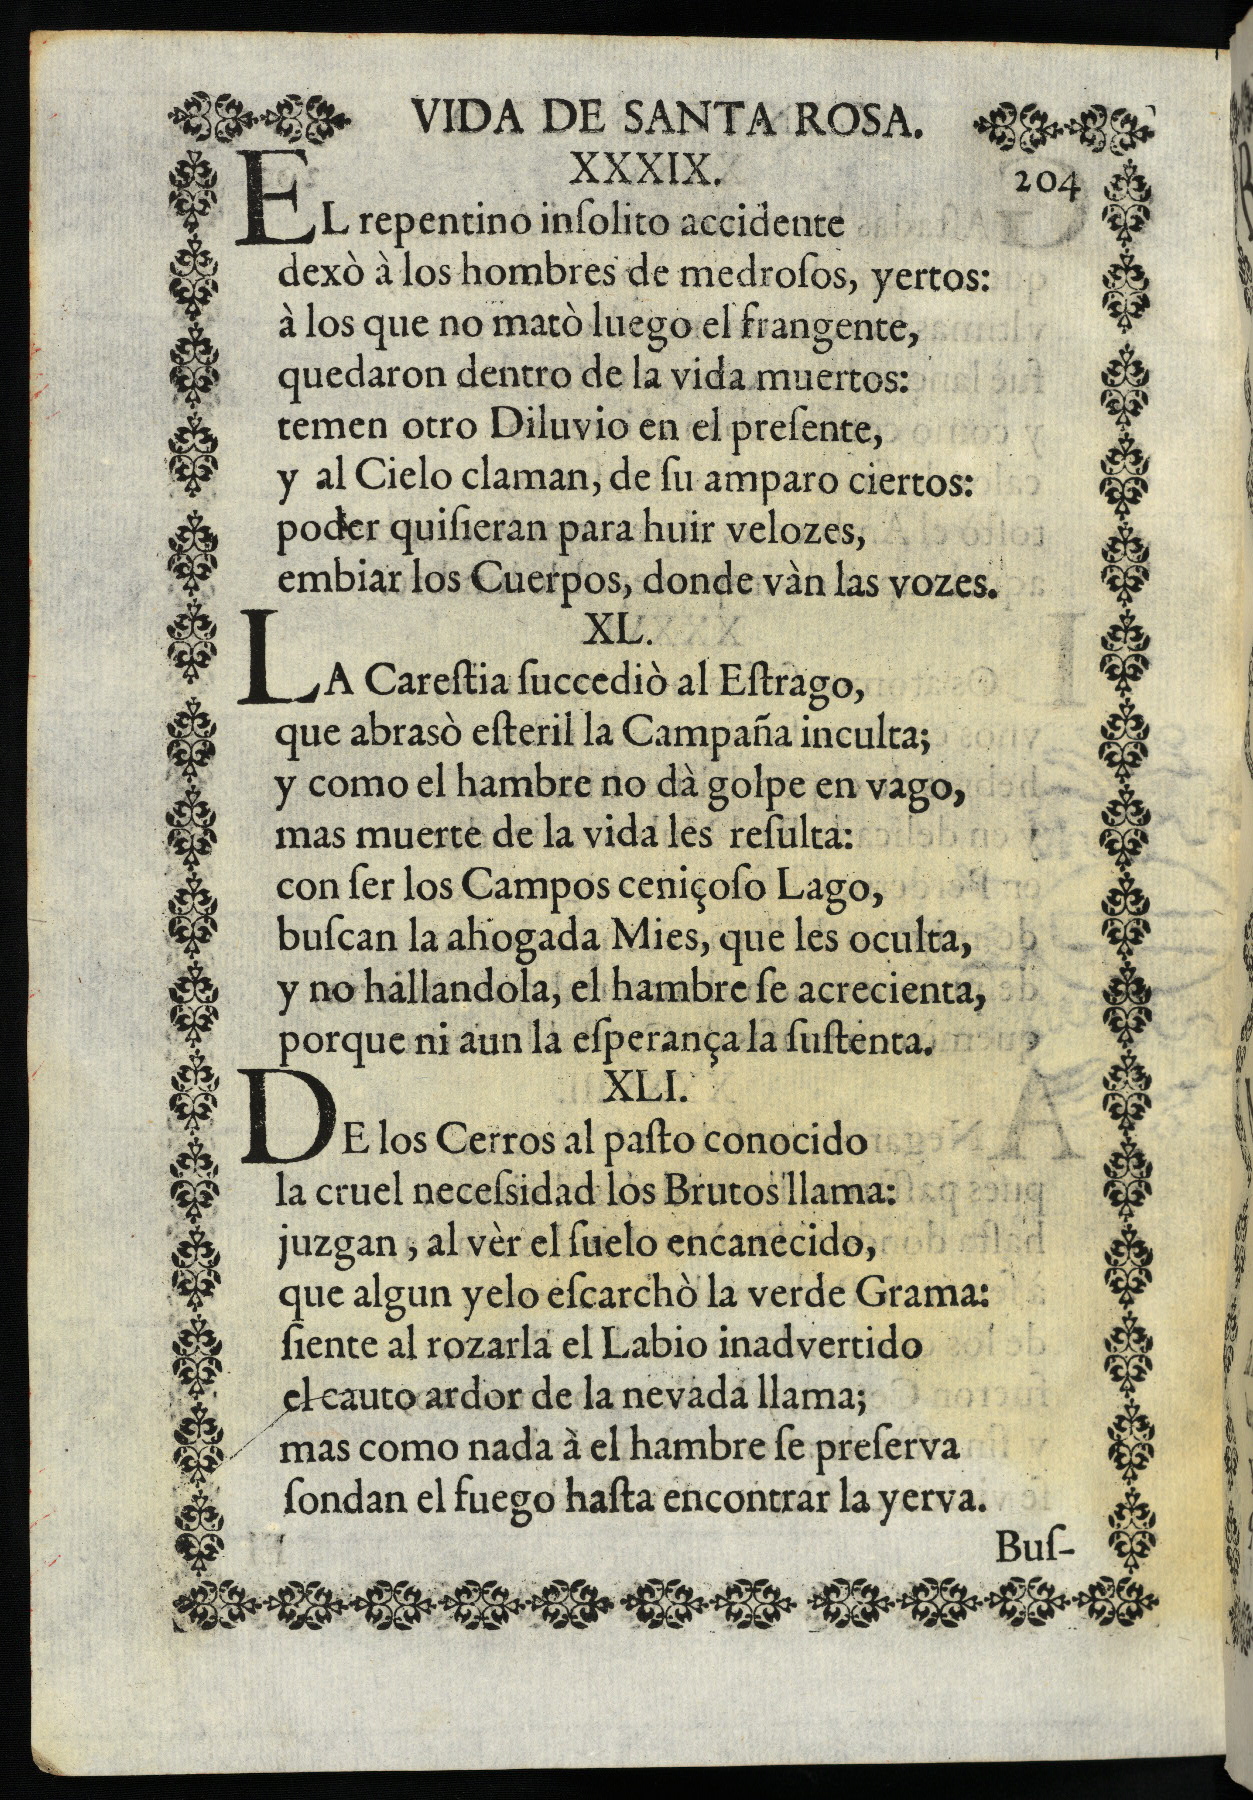 VIDA DE SANTA ROSA.
XXXIX.
204
EL repentino inſolito accidente
dexò à los hombres de medroſos, yertos:
à los que no matò luego el frangente,
quedaron dentro de la vida muertos:
temen otro Diluvio en el preſente,
y al Cielo claman, de ſu amparo ciertos:
poder quiſieran para huir velozes,
embiar los Cuerpos, donde vàn las vozes.
XL.
LA Careſtia ſuccediò al Eſtrago,
que abrasò eſteril la Campaña inculta;
y como el hambre no dà golpe en vago,
mas muerte de la vida les reſulta:
con ſer los Campos ceniçoſo Lago,
buſcan la ahogada Mies, que les oculta,
y no hallandola, el hambre ſe acrecienta,
porque ni aun la eſperança la ſuſtenta.
XLI.
DE los Cerros al paſto conocido
la cruel neceſsidad los Brutos llama:
juzgan, al vèr el ſuelo encanecido,
que algun yelo eſcarchò la verde Grama:
ſiente al rozarla el Labio inadvertido
el cauto ardor de la nevada llama;
mas como nada à el hambre ſe preſerva
ſondan el fuego haſta encontrar la yerva.
Buſ-